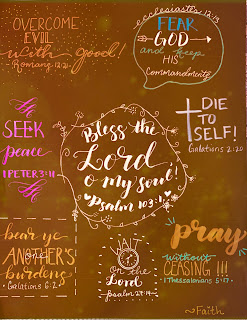 OVERCOME
EVIL
with good!
Romans 12:21
ecclesiastes 12:13
FEAR
GOD
and keep
HIS
Commandments
SEEK
peace
1 PETER 3:11
Bless the
Lord
o my soul!
Psalm 103:1
DIE
TO
SELF!
Galatians 2:20
bear ye
one
ANOTHER'S
burdens
Galatians 6:2
WAIT
on the
Lord
psalm 27:14
pray
without
CEASING!!!
1 Thessalonians 5:17
~Faith